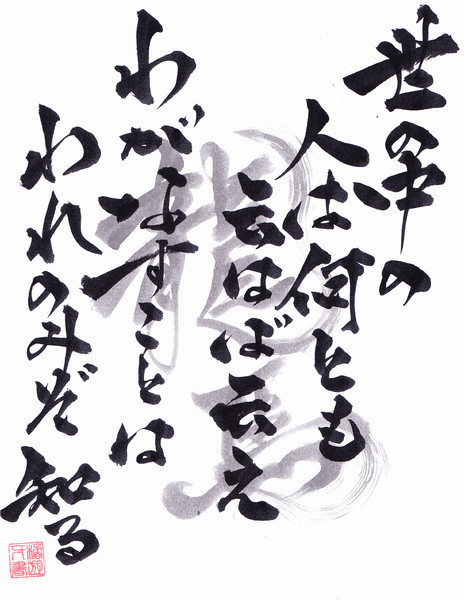 世の中の
人は何とも
云はば云え
わがなすことは
われのみぞ知る
龍馬